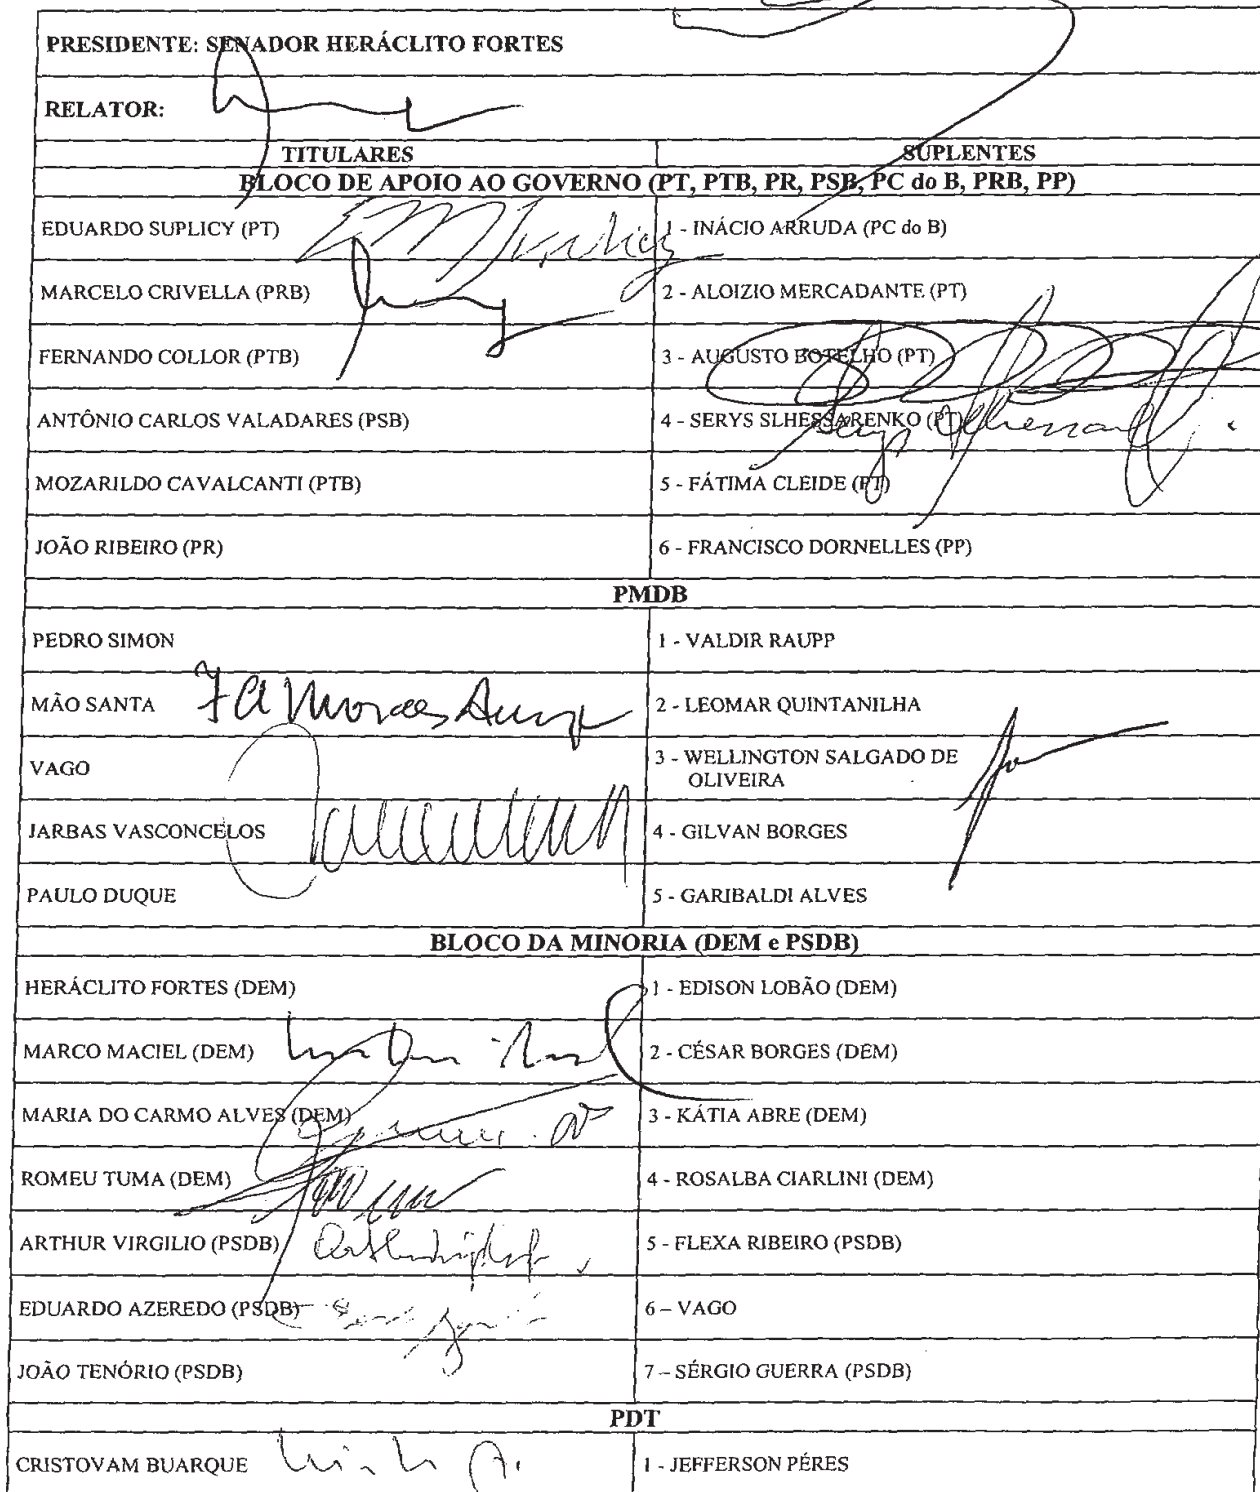 PRESIDENTE: SENADOR HERÁCLITO FORTES
RELATOR:
TITULARES SUPLENTES
BLOCO DE APOIO AO GOVERNO (PT, PTB, PR, PSB, PC do B, PRB, PP)
EDUARDO SUPLICY (PT) 1 - INÁCIO ARRUDA (PC do B)
MARCELO CRIVELLA (PRB) 2 - ALOIZIO MERCADANTE (PT)
FERNANDO COLLOR (PTB) 3 - AUGUSTO BOTELHO (PT)
ANTÔNIO CARLOS VALADARES (PSB) 4 - SERYS SLHESSARENKO (PT)
MOZARILDO CAVALCANTI (PTB) 5 - FÁTIMA CLEIDE (PT)
JOÃO RIBEIRO (PR) 6 - FRANCISCO DORNELLES (PP)
PMDB
PEDRO SIMON 1 - VALDIR RAUPP
MÃO SANTA 2 - LEOMAR QUINTANILHA
VAGO 3 - WELLINGTON SALGADO DE
OLIVEIRA
JARBAS VASCONCELOS 4 - GILVAN BORGES
PAULO DUQUE 5 - GARIBALDI ALVES
BLOCO DA MINORIA (DEM e PSDB)
HERÁCLITO FORTES (DEM) 1 - EDISON LOBÃO (DEM)
MARCO MACIEL (DEM) 2 - CÉSAR BORGES (DEM)
MARIA DO CARMO ALVES (DEM) 3 - KÁTIA ABRE (DEM)
ROMEU TUMA (DEM) 4 - ROSALBA CIARLINI (DEM)
ARTHUR VIRGILIO (PSDB) 5 - FLEXA RIBEIRO (PSDB)
EDUARDO AZEREDO (PSDB) 6 – VAGO
JOÃO TENÓRIO (PSDB) 7 – SÉRGIO GUERRA (PSDB)
PDT
CRISTOVAM BUARQUE 1 - JEFFERSON PÉRES